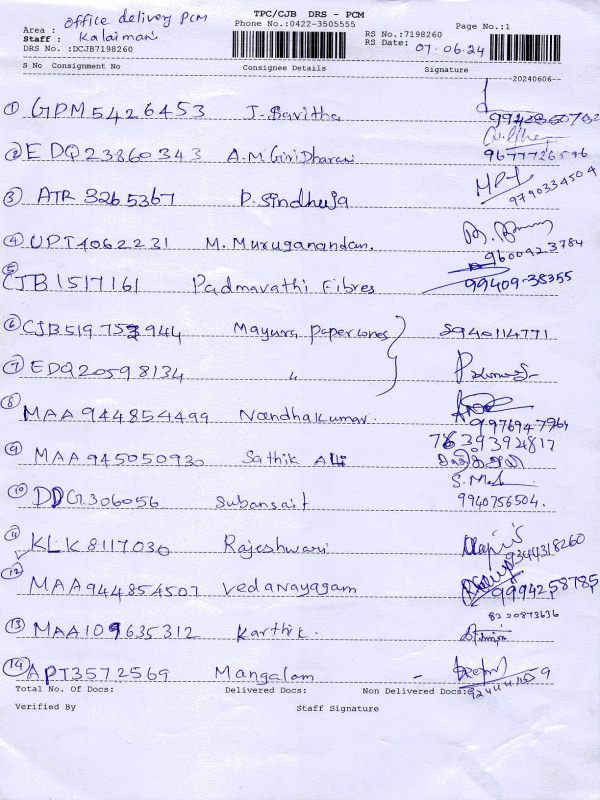 TPC/CJB DRS - PCM
Area : office delivery PCM Phone No.:0422-3505555 Page No.:1
Staff : Kalaimani RS No.:7198260
DRS No. :DCJB7198260 RS Date: 07-06-24
S No Consignment No Consignee Details Signature
20240606
1 GPM5426453 J. Bavitha
2 EDQ23860343 A.M Giri Dharan 9677726596
3 ATR 3265367 P. Sindhuja 9790334504
4 UPT4062231 M. Muruganandan. 9600923784
5 CJB1517161 Padmavathi Fibres 99409-38355
6 CJB519753944 Mayura Papercones 8940114771
7 EDQ20598134 "
8 MAA944854499 Nandhakumar. 9976947964
7639392817
9 MAA945050930 Sathik Ali
10 DDG306056 Subansait 9940756504.
11 KLK8117030 Rajeshwari 9344318260
12 MAA944854507 Vedanayagam 9994258785
8220873636
13 MAA109635312 Karthik.
14 APT3572569 Mangalam -
Total No. Of Docs: Delivered Docs: Non Delivered Docs:
Verified By Staff Signature